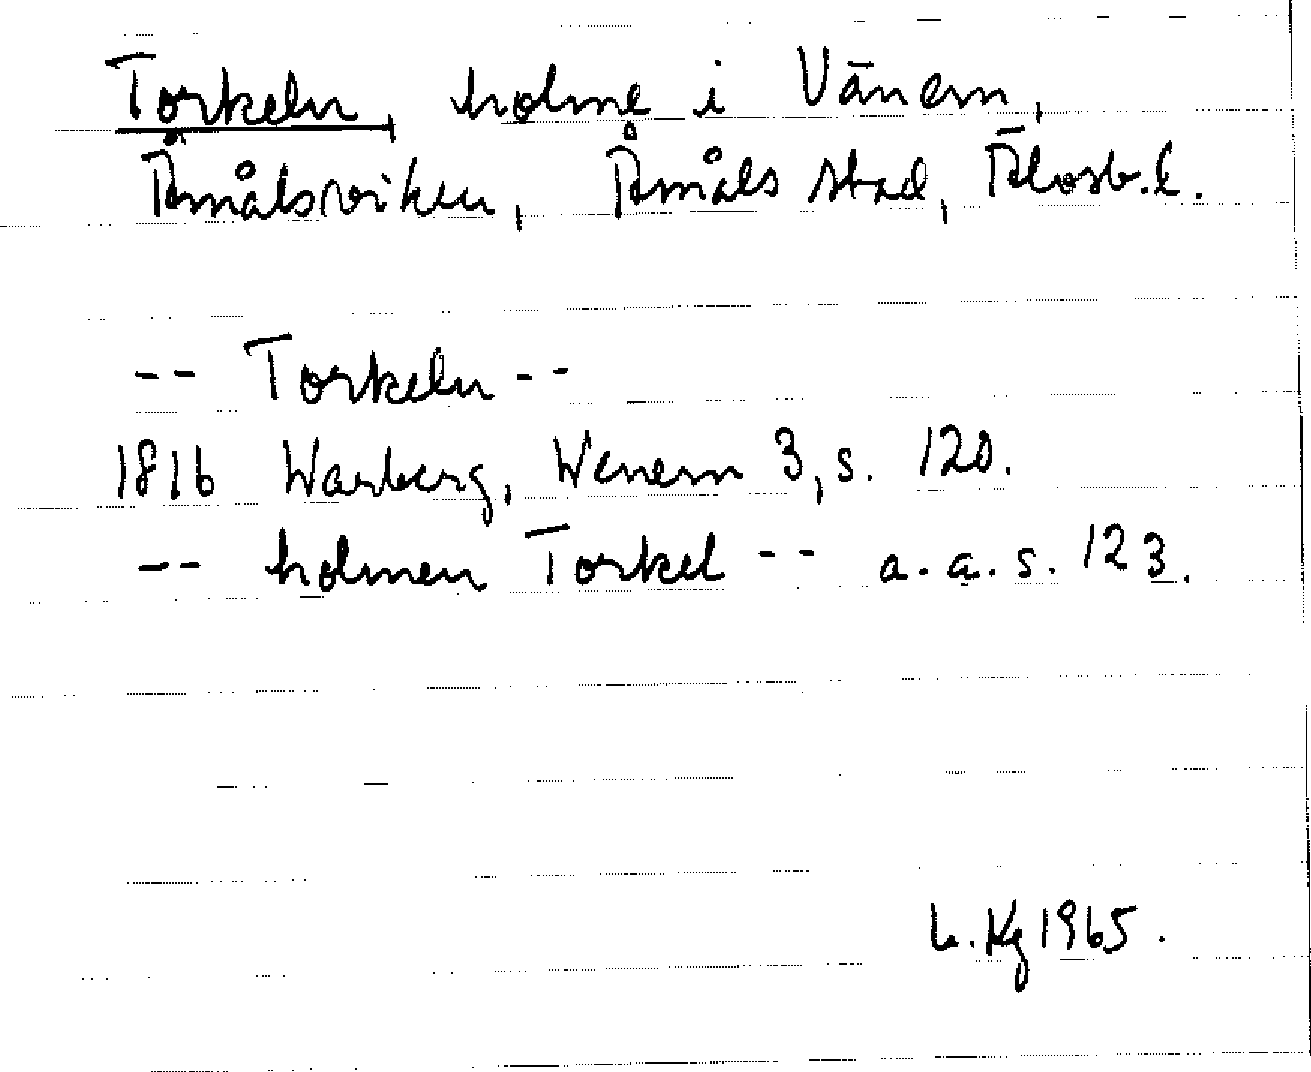 Torkeln, holme i Vänern,
Åmålsviken, Åmåls stad, Älvsb. l.
-- Torkeln --
1816 Warberg, Wenern 3, s. 120.
-- holmen Torkel -- a.a.s. 123.
L. Kg 1965.